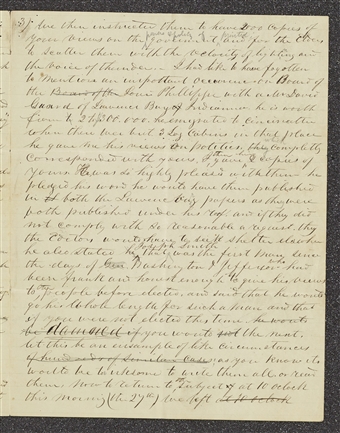 I then instructed them to have 200 copies of
your Views on the Government and for the Elders
to scatter them with the velocity of lightning and
the voice of thunder. I had like to have forgotten
to mention an important occurence on Board of
the Board of the Louis Phillippe with a Mr Davis
of Lawrence Burg Indianna he is worth
from to he emigrated to Cincinnatie
when there was but 3 Log Cabins in that place
he gave me his views on politics, they completely
corresponded with yours, I gave him copies of
yours He was so highly pleased with them he
pledged his word he would have them published
in both the Lawrence Burg papers as they were
both published under his roof and if they did
not comply with so reasonable a request, they
the Editors would have to seek shelter elsewhere
he also stated that Joseph Smith was the first man since
the days of Washington & Jefferson who had
been frank and honest enough to give his views
to the People before elected and said that he would
go his whole length for such a man and that
if you were not elected this time he would
be damned if you would not the next.
let this be an ensample of like circumstances
of hundreds of similar cases as you know it
would be to irksome to write them all or read
them Now to return to my subject, at 10 oclock
this morning (the 27th) we left at 10 oclock